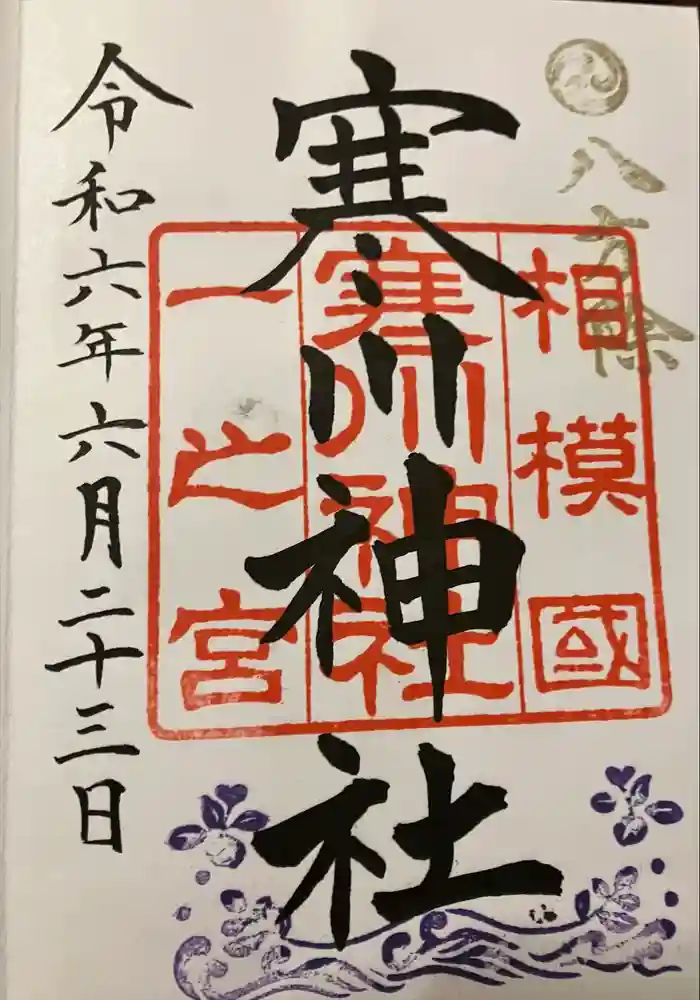 八方除
相模國
寒川神社
一之宮
寒川神社
令和六年六月二十三日